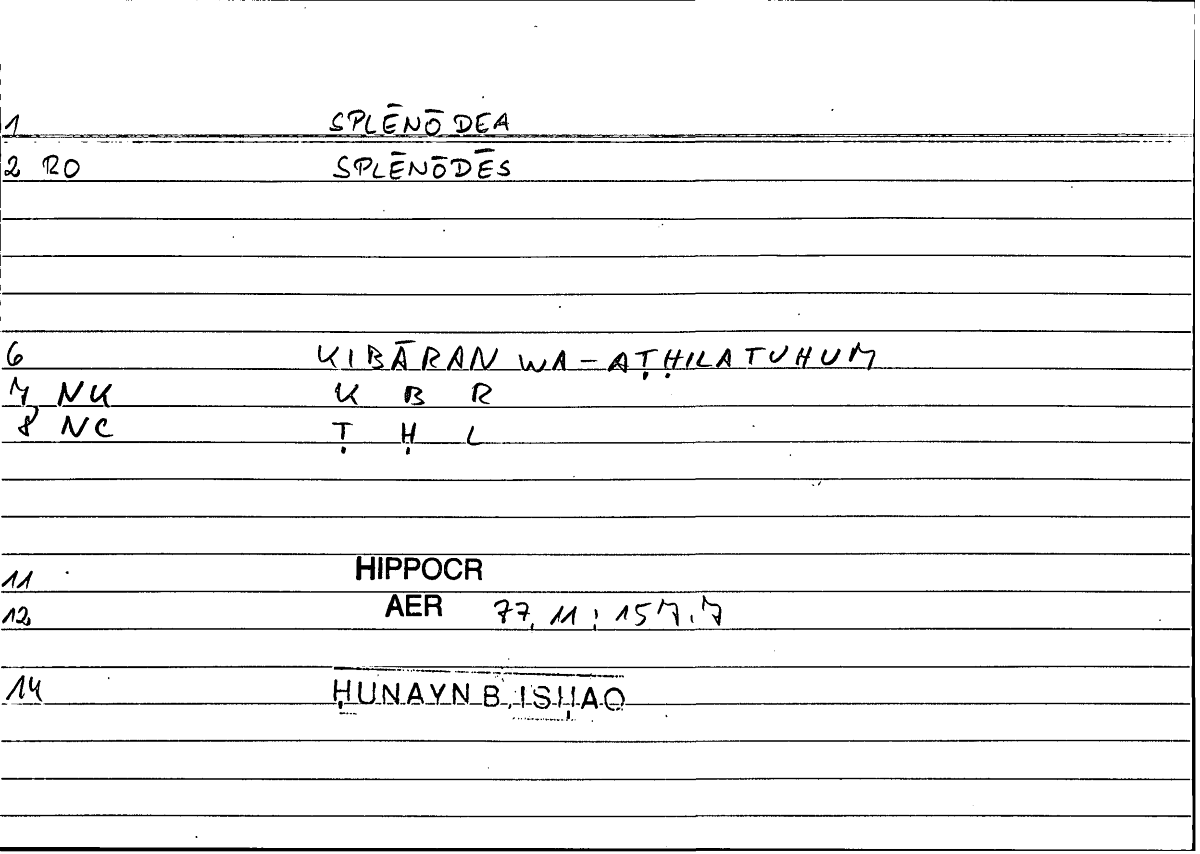 1 SPLĒNŌDEA
2 RO SPLĒNŌDĒS
6 KIBĀRAN WA-AṬḤILATUHUM
7 NK K B R
8 NC Ṭ Ḥ L
11 HIPPOCR
12 AER 77, 11 ; 157.7
14 ḤUNAYN B. ISḤAQ